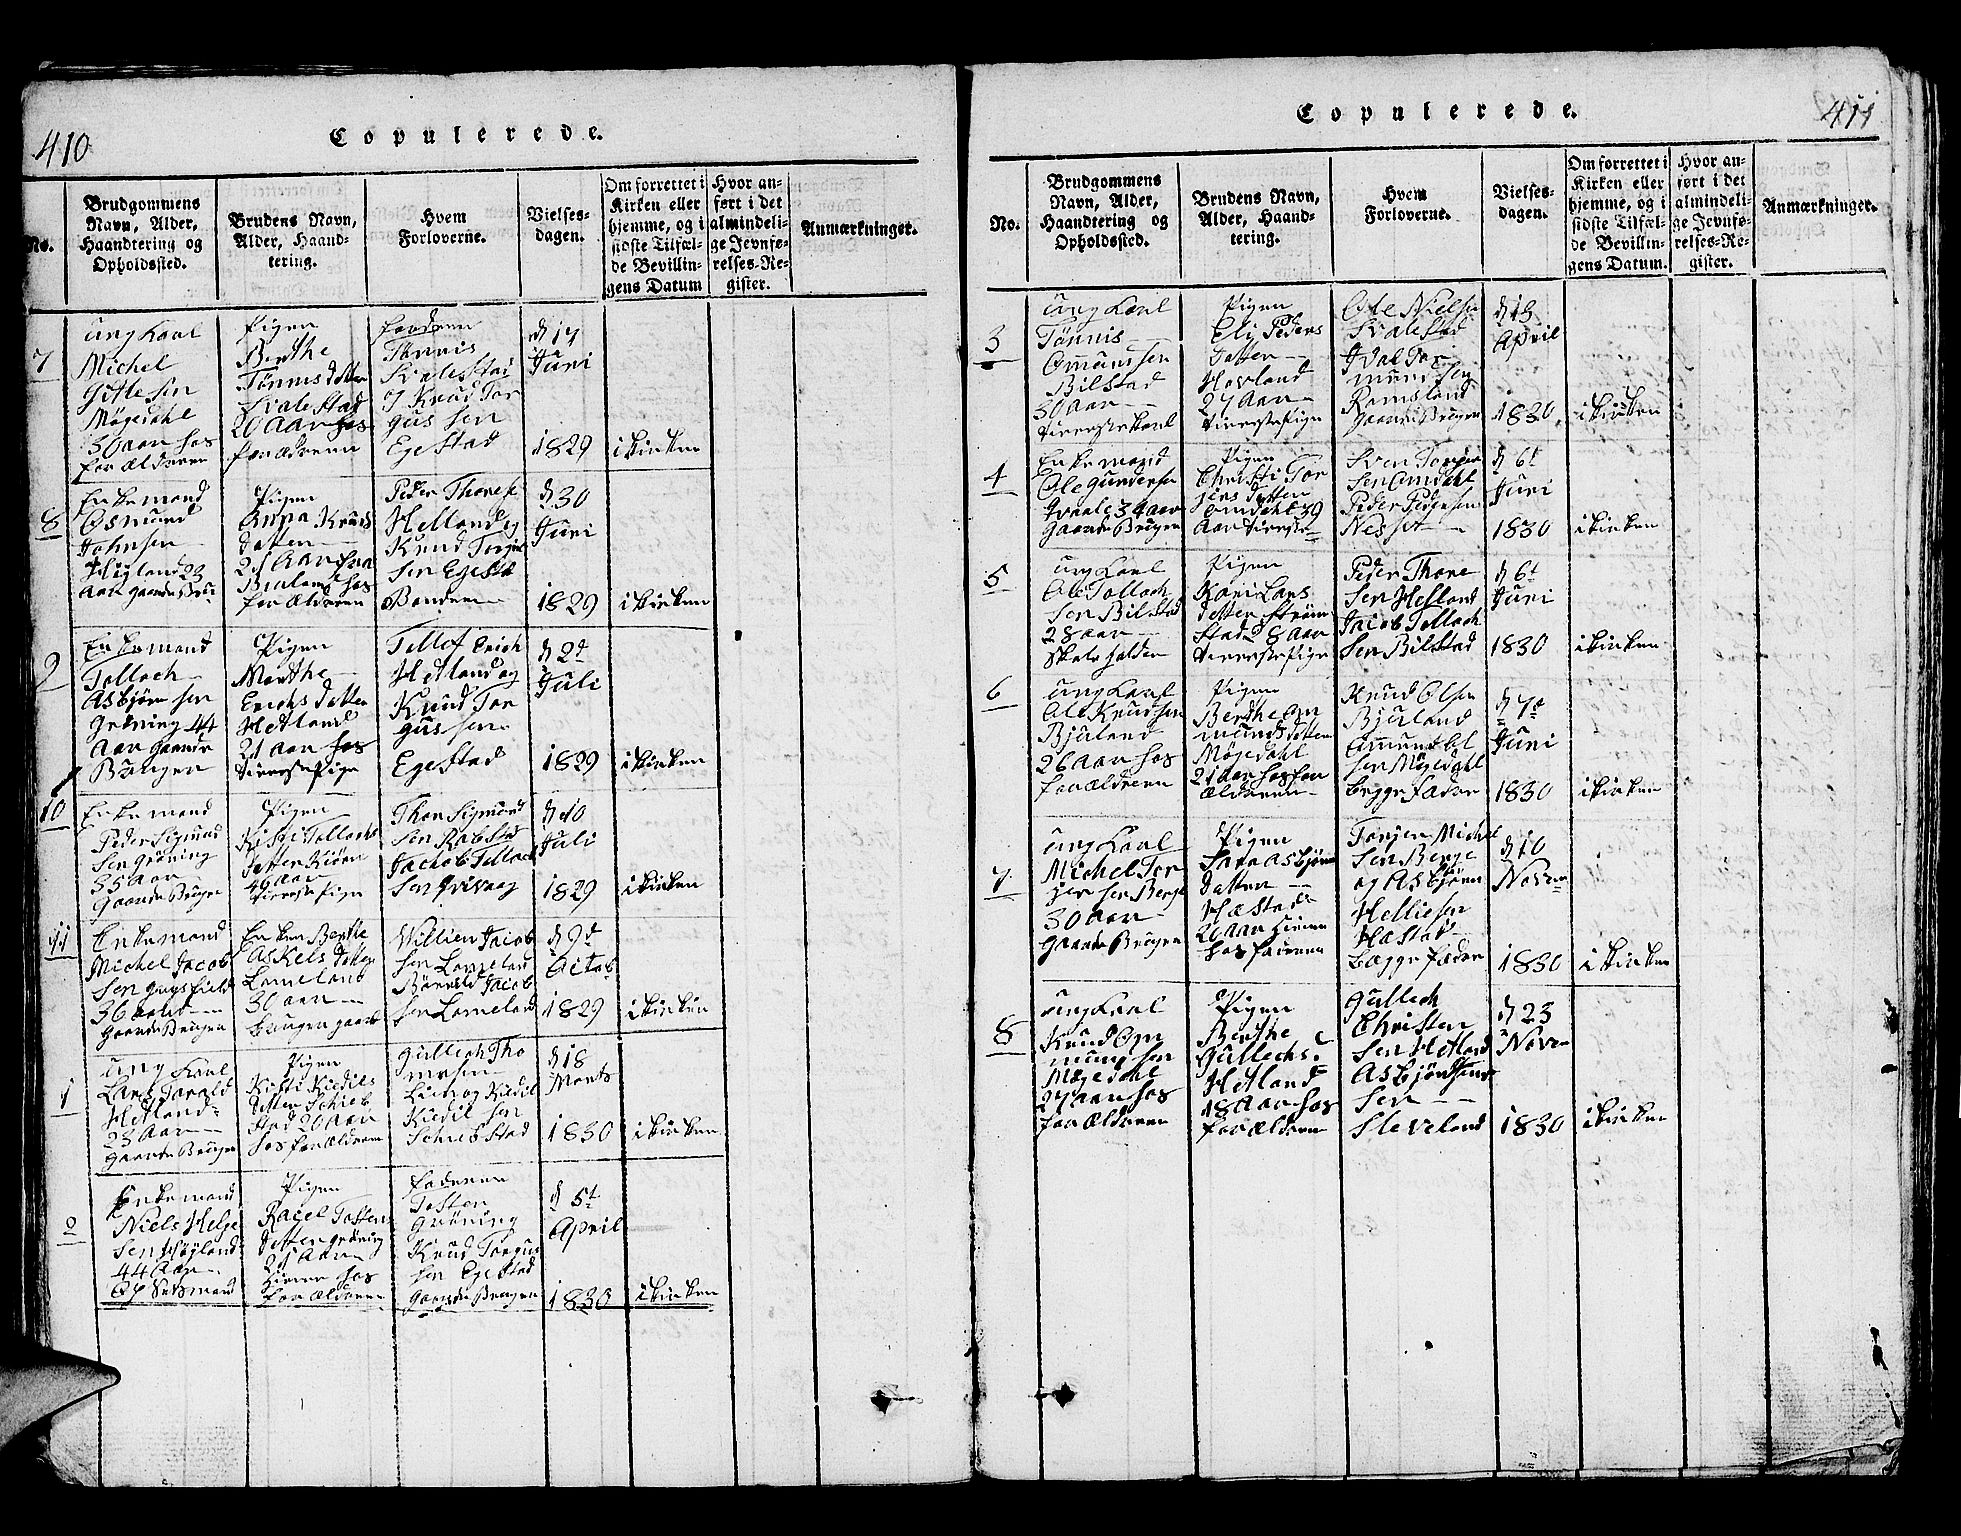 410
Copulerede.
No.
Brudgommens
Navn, Alder,
Haandtering og
Opholdssted.
Brudens Navn,
Alder, Haand-
tering.
Hvem
Forloverne.
Vielses-
dagen.
Om forrettet i
Kirken eller
hjemme, og i
sidste Tilfæl-
de Bevillin-
gens Datum
Hvor an-
ført i det
almindeli-
ge Jevnfø-
relses-Re-
gister.
Anmærkninger.
7
ung Karl
Michel
Gitlesen
Møgedahl
30 aar hos
forældrene
Pigen
Berthe
Tønnis datter
Svalestad
20 Aar hos
forældrene
faderen
Tønnis
Svalestad
Knud Tor
gussen
Egestad
17
Juni
1829
i kirken
8
Enkemand
Osmund
Johnsen
Høgland 23
Aar gaardbru
Pigen
Anna Knuds
datter
21 Aar
hos
forældrene
Peder Thorese
Helland og
Knud Torgus
sen Egesta
Bønder
30
Juni
1829
i kirken
9
Enkemand
Tollach
Asbjørnsen
Grøning 44
Aar gaard
Brugen
Pigen
Marthe
Erichs datter
Hetland
21 Aar hos
tienestepige
Tollof Erich
Hetland og
Knud Tor
gussen
Egestad
2d
Juli
1829
i kirken
10
Enkemand
Peder Sigmund
sen Grøning
35 Aar
gaardbruger
Pigen
Kisti Tollachs
datter
49 aar
tienestepige
Thor Sigmund
sen Rabstad
Jacob Tollach
sen
10
Juli
1829
i kirken
11
Enkemand
Michel Jacob
sen
36 aar
gaardbruger
Enken Berthe
Askels datter
Lomeland
30 aar
bruger gaard
Willien Jacob
sen Lomeland
Jacob
sen Lomeland
9d
Octob
1829
i kirken
1
ung karl
Lars Tarald
Hetland
23 Aar
gaardbruger
Pigen
Kisti Kiedils
datter Schieb
stad 20 Aar
hos forældrene
Gullech Tho
msen
Lien og Kiedil
Kiedilsen
Schiebstad
18
Marts
1830
i kirken
2
Enkemand
Niels Helge
sen Høyland
44 Aar
Pigen
Raiel Tosten
datter Grøning
21 Aar
hos
forældrene
faderen
Tosten
Grøning
Knud Torgus
sen Egestad
gaardbruger
5t
April
1830
i kirken
411
Copulerede.
No.
Brudgommens
Navn, Alder,
Haandtering og
Opholdssted.
Brudens Navn,
Alder, Haand-
tering.
Hvem
Forloverne.
Vielses-
dagen.
Om forrettet i
Kirken eller
hjemme, og i
sidste Tilfæl-
de Bevillin-
gens Datum.
Hvor an-
ført i det
almindeli-
ge Jevnfø-
relses-Re-
gister.
Anmærkninger.
3
ung Karl
Tønnis
Omunssen
Bilstad
30 Aar
tienestekarl
Pigen
Eli Peders
datter
Hovland
27 Aar
tienestepige
Ole Nielsen
Svalestad
munsen
Ramsland
gaardbruger
13
April
1830
i kirken
4
Enkemand
Ole Gundersen
34 aar
gaardbruger
Pigen
Christi Tor
jers datter
Omdahl 39
Aar tieneste
Sven Torjer
sen Omdahl
Peder Pedersen
Nesset
6t
Juni
1830
i kirken
5
ung karl
Ole Tollach
sen Bilstad
28 aar
skoleholder
Pigen
Kari Lars
datter Strøm
stad 28 Aar
tienestepige
Peder Thore
sen Helland
Jacob Tollach
sen Bilstad
6t
Juni
1830
i kirken
6
ung karl
Ole Knudsen
Bjuland
26 Aar hos
forældrene
Pigen
Berthe Om
munds datter
Møgedahl
21 aar hos for
ældrene
Knud Olsen
Bjuland
Ommund
sen Møgedahl
begge fædre
7d
Juni
1830
i kirken
7
ung karl
Michel Tor
jersen Berge
30 Aar
gaardbruger
Pigen
Sara Asbjørns
datter
Hæstad
26 Aar
hos faderen
Torjer Michel
sen Berge
og Asbjørn
Helliesen
Hæstad
begge fædre
10
Novem
1830
i kirken
8
ung karl
Knud Om
mundsen
Møgedahl
27 aar hos
forældrene
Pigen
Berthe
Gullechs d
Hetland
18 Aar hos
forældrene
Gullech
Christen
sen Hetland
Asbjørn
sen
Sleveland
23
Nove
1830
i kirken